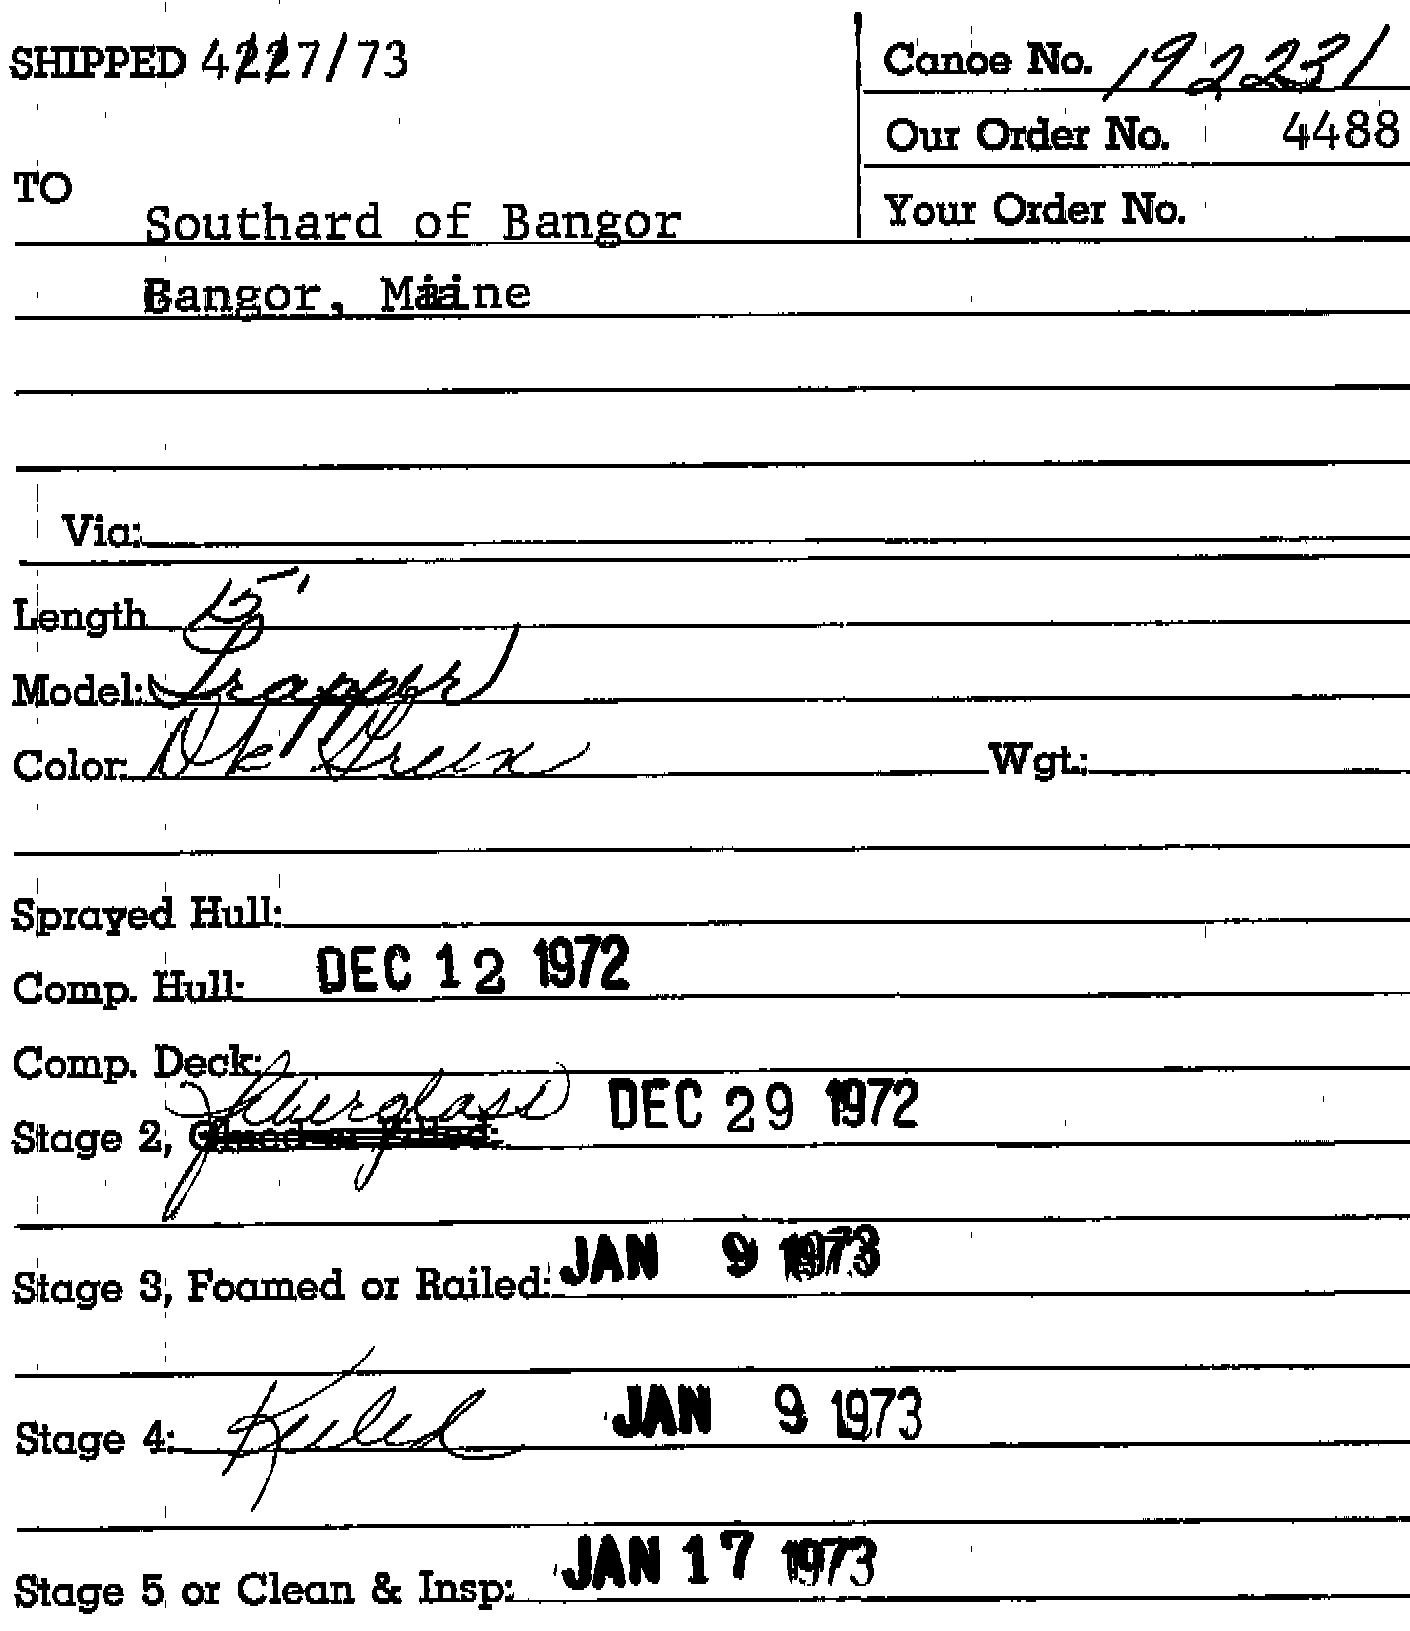 SHIPPED 4/27/73
Canoe No. 192231
Our Order No. 4488
TO
Your Order No.
Southard of Bangor
Bangor, Maine
Via:
Length 15'
Model: Trapper
Color: Dk Green Wgt.:
Sprayed Hull:
Comp. Hull: DEC 12 1972
Comp. Deck:
Stage 2, Glued or Filled: fiberglass DEC 29 1972
Stage 3, Foamed or Railed: JAN 9 1973
Stage 4: Keeled JAN 9 1973
Stage 5 or Clean & Insp: JAN 17 1973